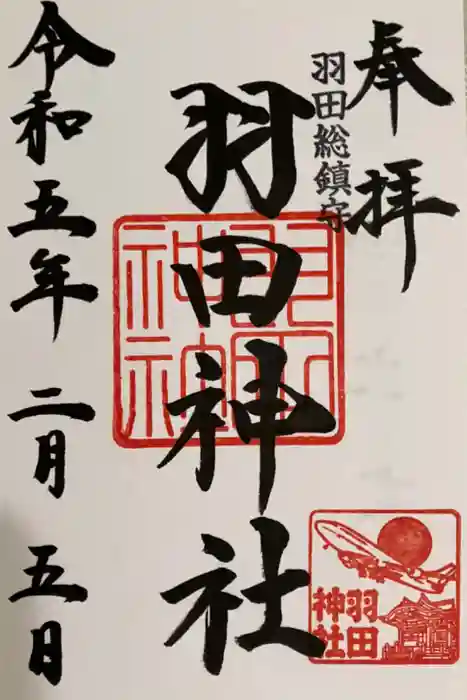 奉拝
羽田総鎮守
羽田神社
羽田神社
令和五年二月五日
羽田
神社